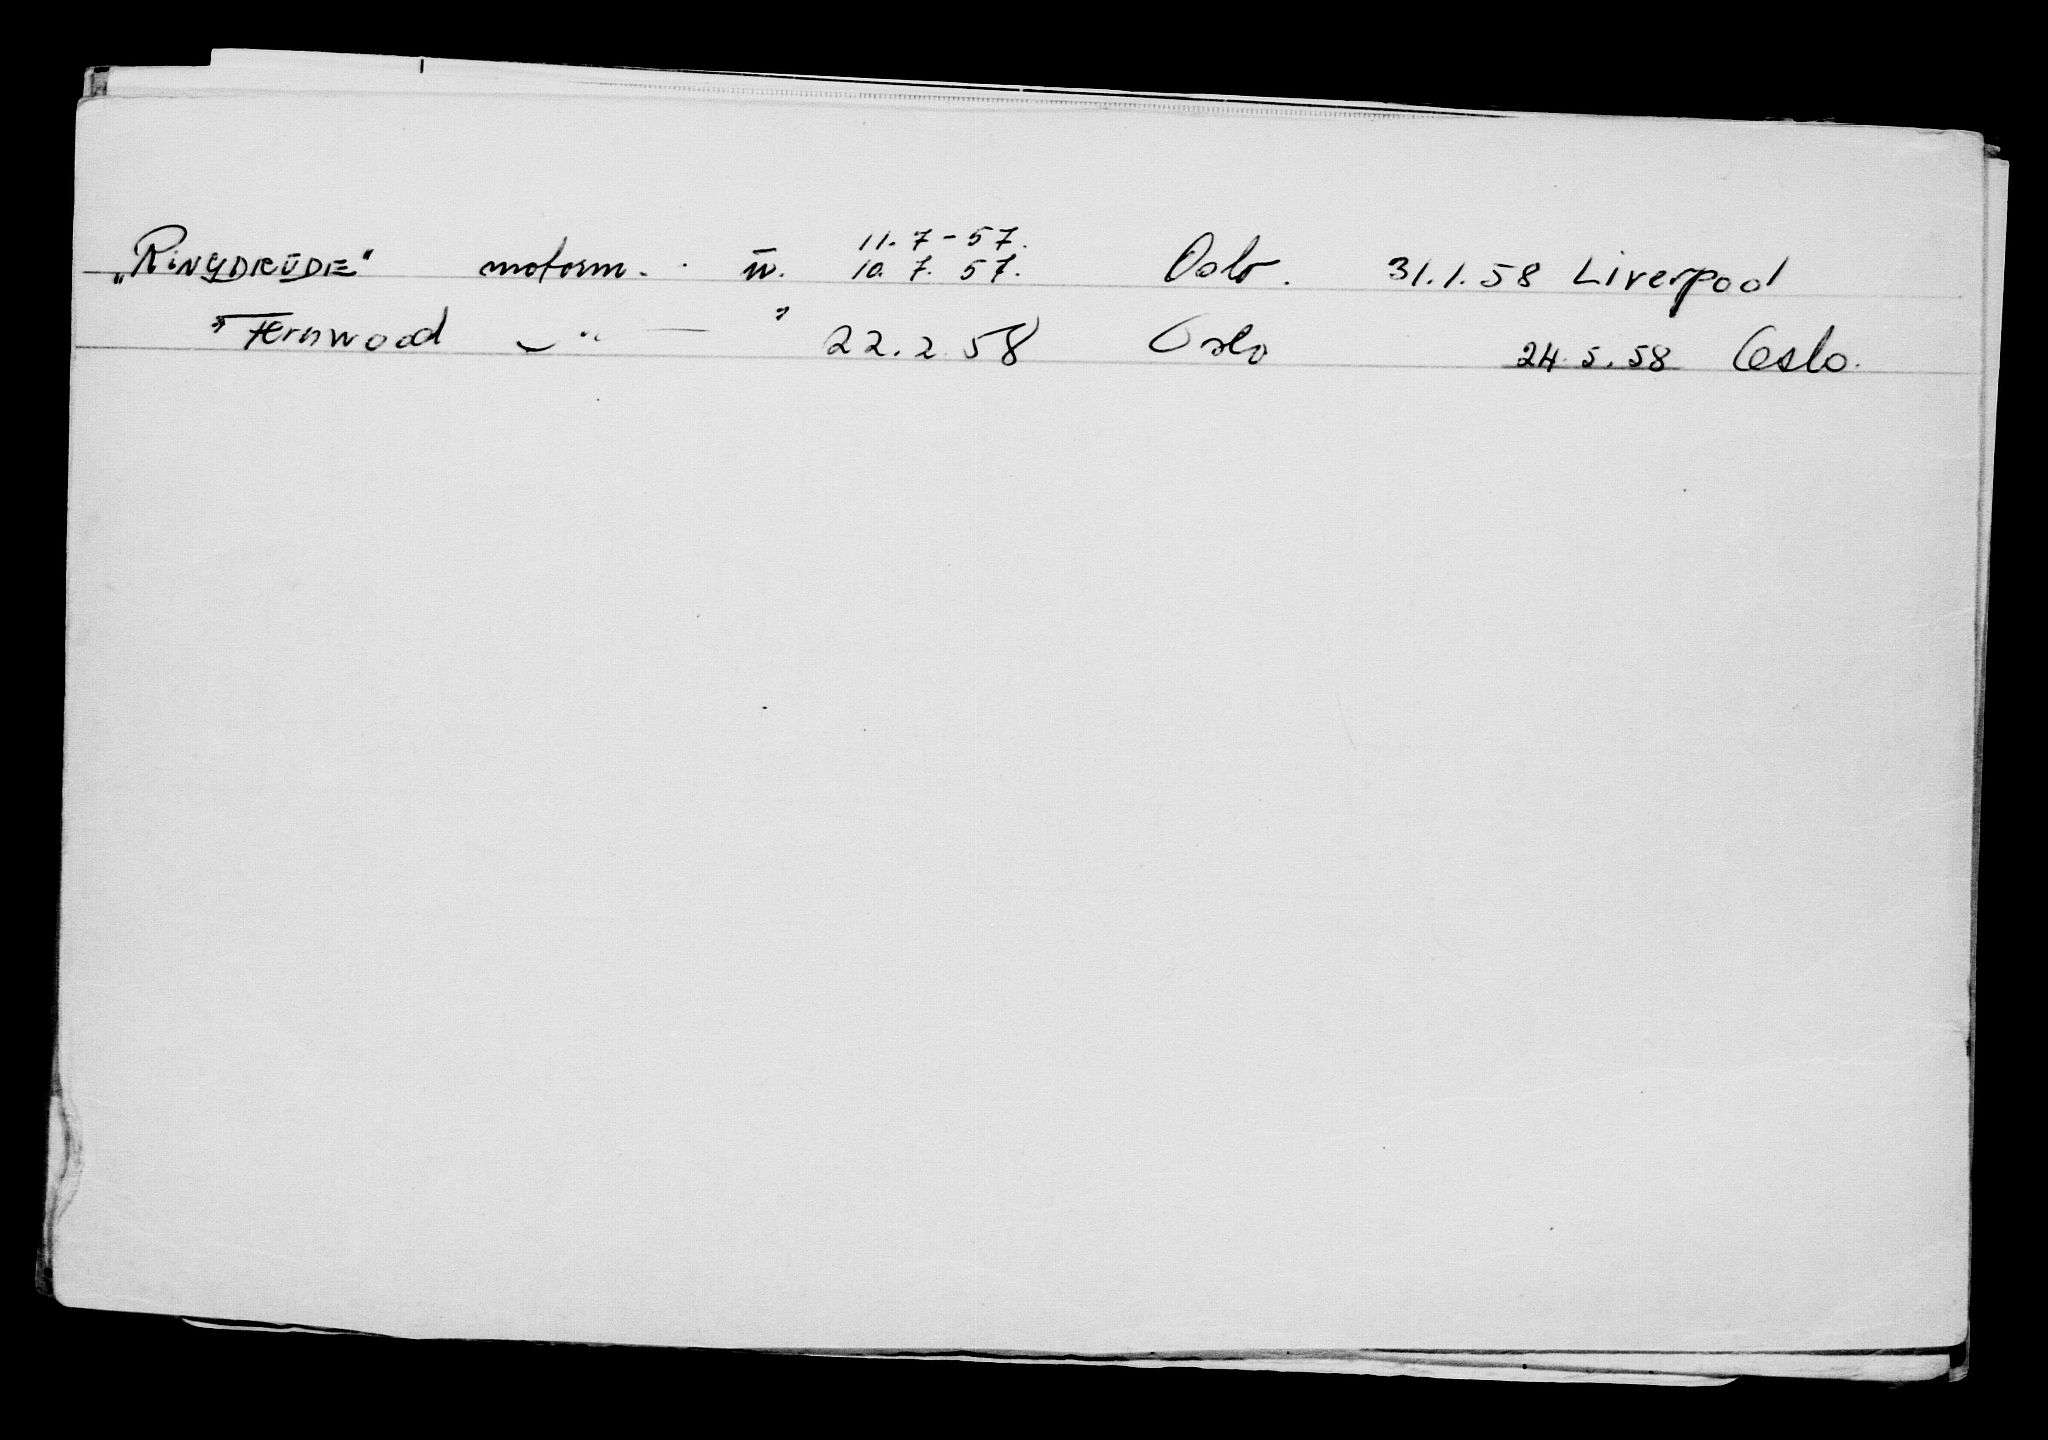 11.7-57.
„RINGDRUDE" motorm. u. 10.7.57. Oslo. 31.1.58 Liverpool
"Fernwood — " — " 22.2.58 Oslo 24.5.58 Oslo.